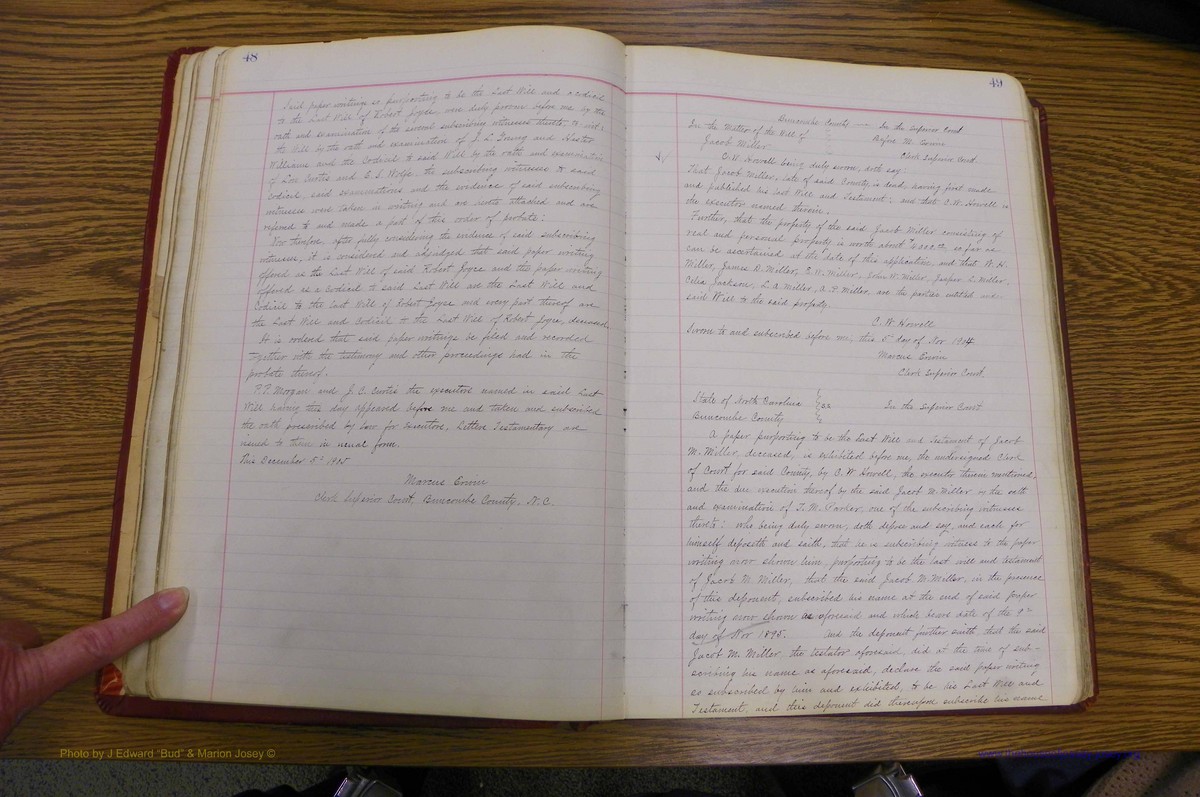 48
Said paper writings so purporting to be the Last Will and a codicil
to the Last Will of Robert Joyce, were duly proven before me by the
oath and examination of the several subscribing witnesses thereto, to-wit:
the Will by the oath and examination of J. L. Young and Hester
Williams and the Codicil to said Will by the oath and examination
of Lon Curtis and E. L. Wolfe, the subscribing witnesses to said
codicil, said examinations and the evidence of said subscribing
witnesses were taken in writing and are hereto attached and are
referred to and made a part of this order of probate:
Now therefore, after fully considering the evidence of said subscribing
witnesses, it is considered and adjudged that said paper writing
offered is the Last Will of said Robert Joyce and the paper writing
offered is a Codicil to said Last Will are the Last Will and
Codicil to the Last Will of Robert Joyce and every part thereof are
the Last Will and Codicil to the Last Will of Robert Joyce, deceased
It is ordered that said paper writings be filed and recorded
together with the testimony and other proceedings had in the
probate thereof.
P. P. Morgan and J. C. Curtis the executors named in said Last
Will having this day appeared before me and taken and subscribed
the oath prescribed by law for executors, Letters Testamentary are
issued to them in usual form.
This December 5th 1915
Marcus Erwin
Clerk Superior Court, Buncombe County, N.C.
49
Buncombe County — In the Superior Court
In the Matter of the Will of Before M. Erwin
Jacob Miller Clerk Superior Court
C. W. Howell being duly sworn, doth say:
That Jacob Miller, late of said County, is dead, having first made
and published his last Will and Testament; and that C. W. Howell is
the executor named therein.
Further, that the property of the said Jacob Miller consisting of
real and personal property is worth about so far as
can be ascertained at the date of this application, and that W. H.
Miller, James D. Miller, E. W. Miller, John W. Miller, Jasper L. Miller,
Celia Jackson, L. A. Miller, A. P. Miller, are the parties entitled under
said Will to the said property.
C. W. Howell
Sworn to and subscribed before me, this 5th day of Nov 1914
Marcus Erwin
Clerk Superior Court
State of North Carolina } ss In the Superior Court
Buncombe County
A paper purporting to be the Last Will and testament of Jacob
M. Miller, deceased, is exhibited before me, the undersigned Clerk
of Court for said County, by C. W. Howell, the executor therein mentioned,
and the due execution thereof by the said Jacob M. Miller by the oath
and examination of T. M. Parker, one of the subscribing witnesses
thereto: who being duly sworn, doth depose and say, and each for
himself deposeth and saith, that he is subscribing witness to the paper
writing now shown him, purporting to be the last will and testament
of Jacob M. Miller, that the said Jacob M. Miller, in the presence
of this deponent, subscribed his name at the end of said paper
writing now shown as aforesaid and which bears date of the 9th
day of Nov 1895. And the deponent further saith, that the said
Jacob M. Miller, the testator aforesaid, did at the time of sub-
scribing his name as aforesaid, declare the said paper writing
so subscribed by him and exhibited, to be his Last Will and
Testament, and this deponent did thereupon subscribe his name
Photo by J Edward "Bud" & Marion Josey ©